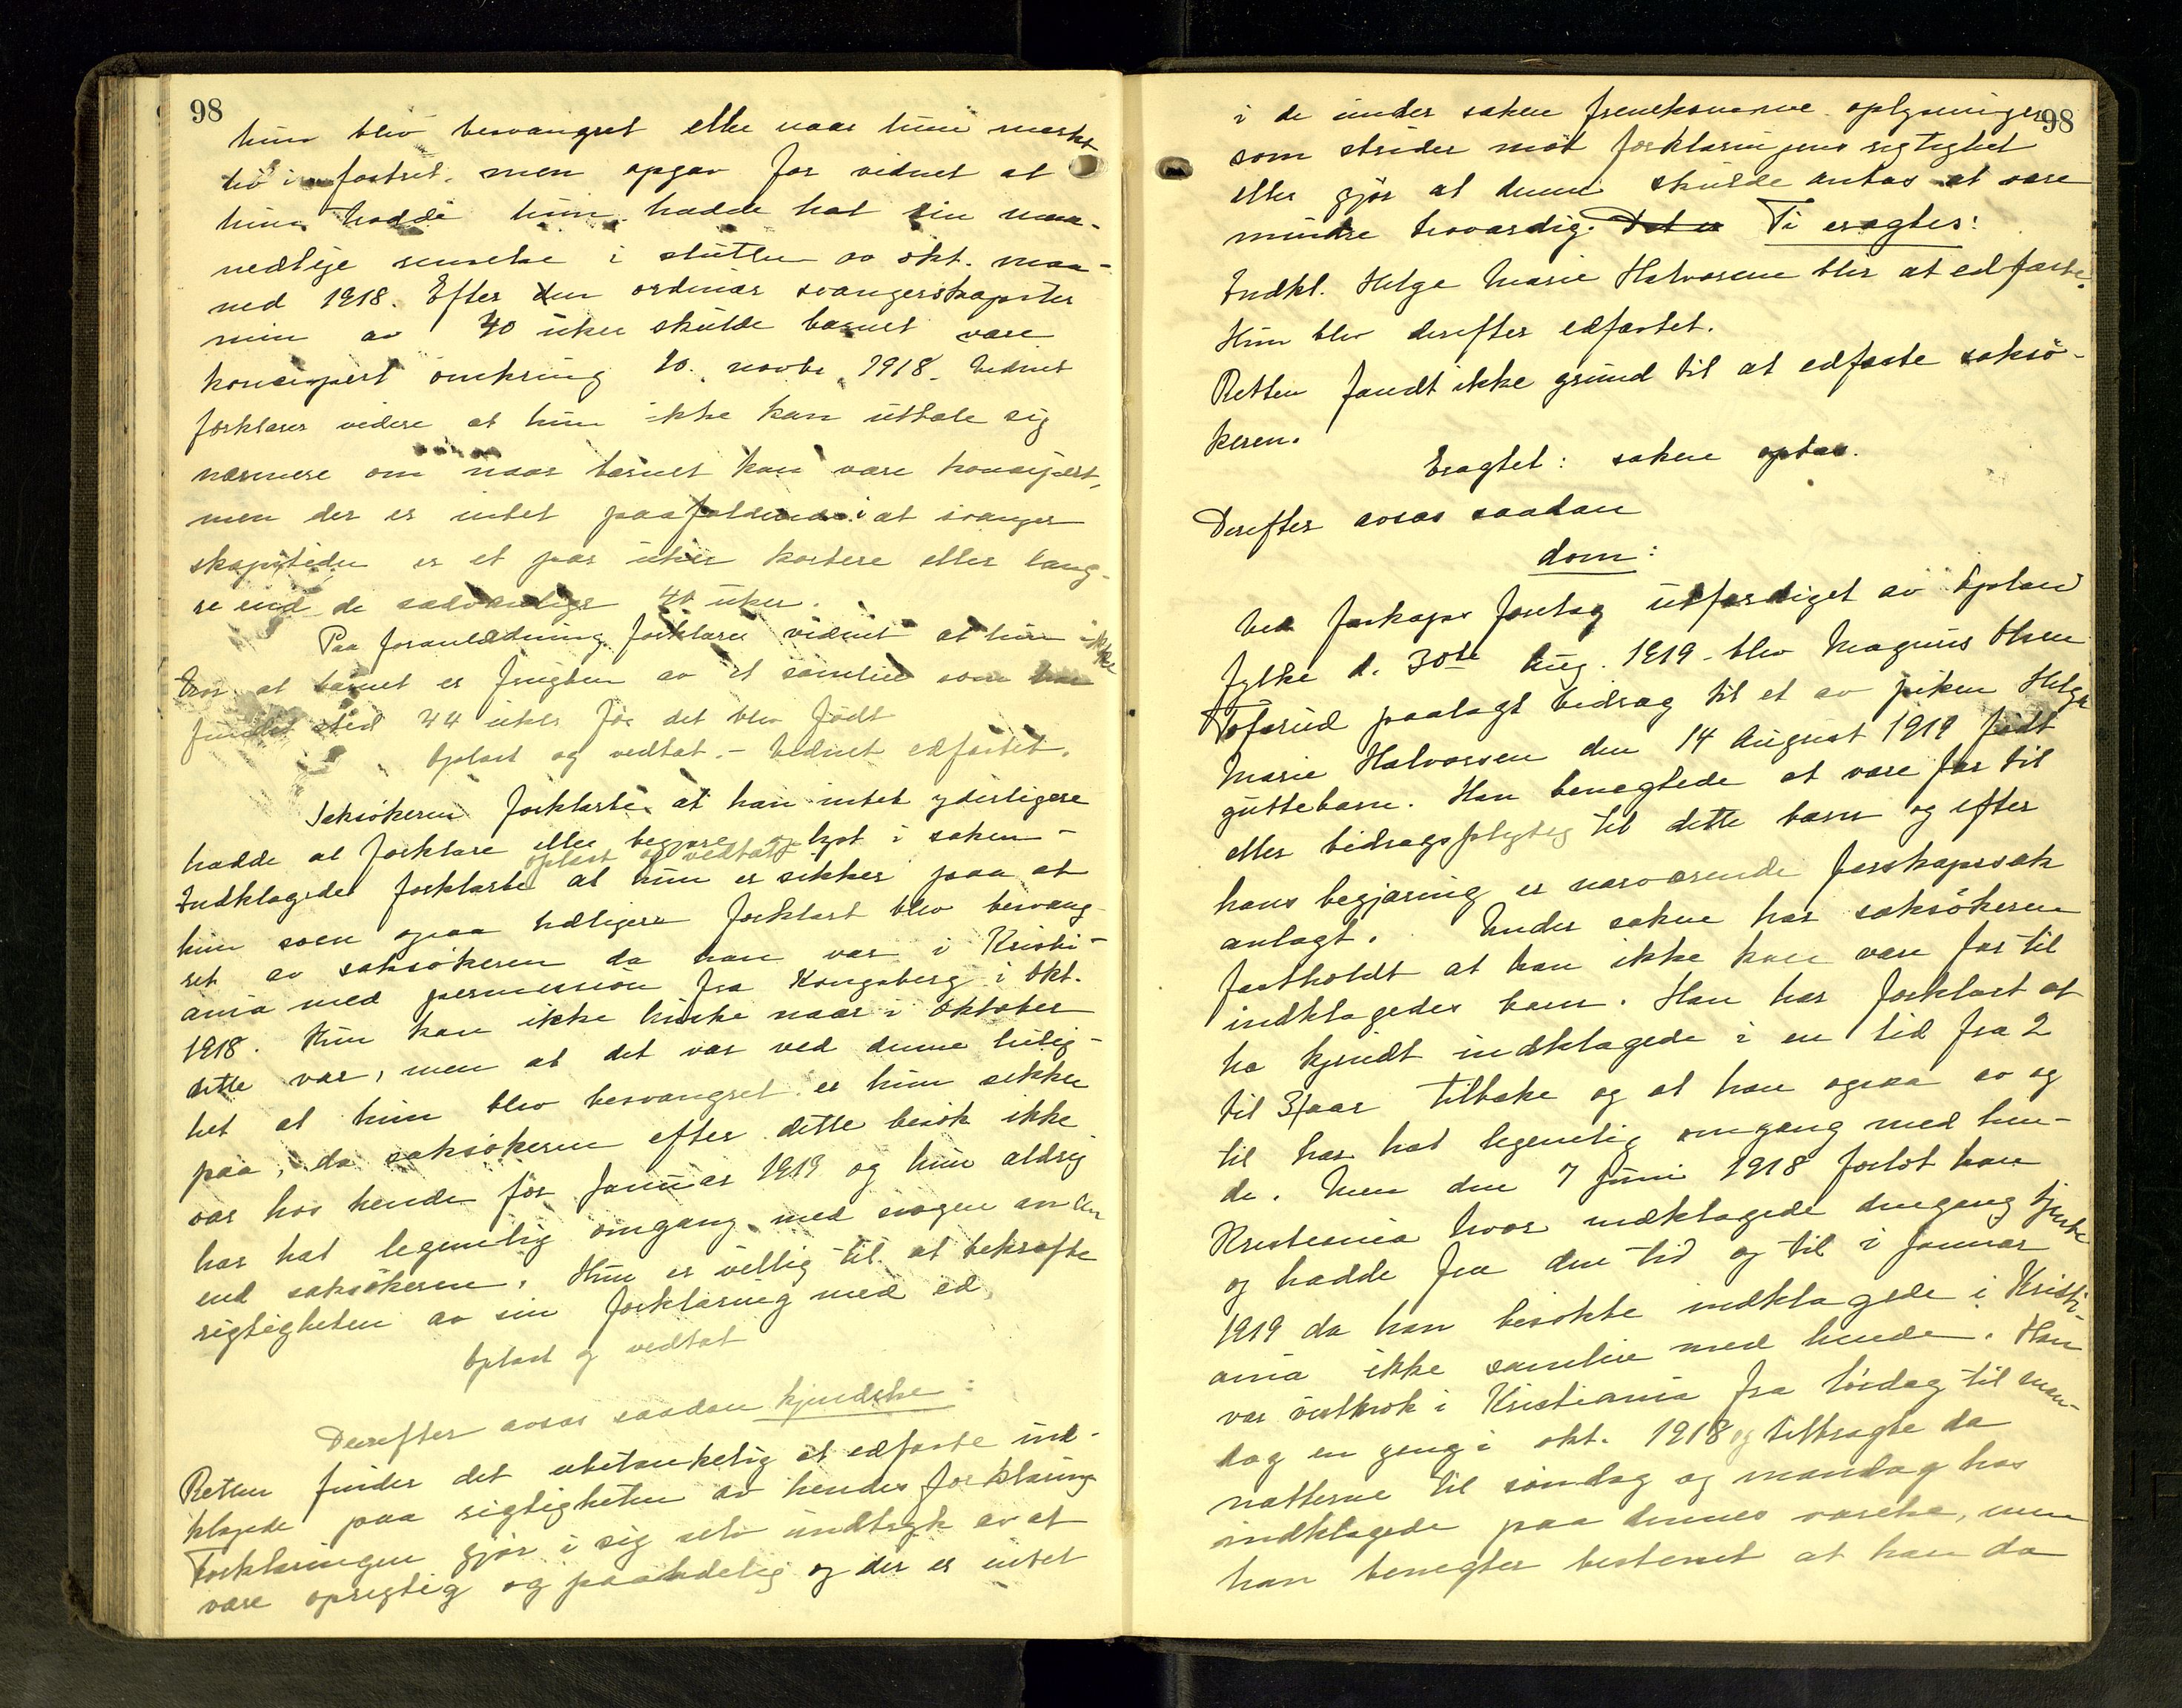 98
hun blev besvangret eller naar hun merket
liv i fostret, men opgav for vidnet at
hun hadde hun hadde hat sin maa-
nedlige renselse i slutten av okt. maa-
ned 1918. Efter den ordinær svangerskapster
min av 40 uker skulde barnet være
koncipert omkring 10. novbr. 1918. Vidnet
forklarer videre at hun ikke kan uttale sig
nærmere om naar barnet kan være koncipert,
men der er intet paafaldende i at svanger
skapstiden er et par uker kortere eller læng-
re end de sædvanlige 40 uker.
Paa foranledning forklarer vidnet at hun ikke
tror at barnet er frugten av et samleie som har
fundet sted 44 uker før det blev født
Oplæst og vedtat. - Vidnet edfæstet.
Saksøkeren forklarte at han intet yderligere
hadde at forklare eller begjære oplyst i saken -
oplæst og vedtatt
Indklagede forklarte at hun er sikker paa at
hun som ogsaa tidligere forklart blev besvang
ret av saksøkeren da han var i Kristi-
ania med permission fra Kongsberg i okt.
1918. Hun kan ikke huske naar i oktober
dette var, men at det var ved denne leilig-
het at hun blev besvangret er hun sikker
paa, da saksøkeren efter dette besøk ikke
var hos hende før januar 1919 og hun aldrig
har hat legemlig omgang med nogen anden
end saksøkeren. Hun er villig til at bekræfte
rigtigheten av sin forklaring med ed.
Oplæst og vedtat
Derefter avsas saadan kjendelse:
Retten finder det ubetænkelig at edfæste ind-
klagede paa rigtigheten av hendes forklaring
Forklaringen gjør i sig selv indtryk av at
være oprigtig og paalidelig og der er intet
98
i de under saken fremkomne oplysninger
som strider mot forklaringens rigtighet
eller gjør at denne skulde antas at være
mindre troværdig. Det er Ti eragtes:
Indkl. Helga Marie Halvorsen blir at edfæste.
Hun blev derefter edfæstet.
Retten fandt ikke grund til at edfæste saksø-
keren.
Eragtet: saken optas.
Derefter avsas saadan
dom:
Ved farskaps forelæg utfærdiget av Opland
fylke d. 30te Aug. 1919 blev Magnus Olsen
Tofsrud paalagt bidrag til et av piken Helga
Marie Halvorsen den 14 August 1919 født
guttebarn. Han benegtede at være far til
eller bidragspligtig til dette barn og efter
hans begjæring er nærværende farskapssak
anlagt. Under saken har saksøkeren
fastholdt at han ikke kan være far til
indklagedes barn. Han har forklart at
ha kjendt indklagede i en tid fra 2
til 3 aar tilbake og at han ogsaa av og
til har hat legemlig omgang med hen-
de. Men den 7 juni 1918 forlot han
Kristiania hvor indklagede dengang tjente
og hadde fra den tid og til i januar
1919 da han besøkte indklagede i Kristi-
ania ikke samleie med hende. Han
var vistnok i Kristiania fra lørdag til man-
dag en gang i okt. 1918 og tilbragte da
natterne til søndag og mandag hos
indklagede paa dennes værelse, men
han benegter bestemt at han da